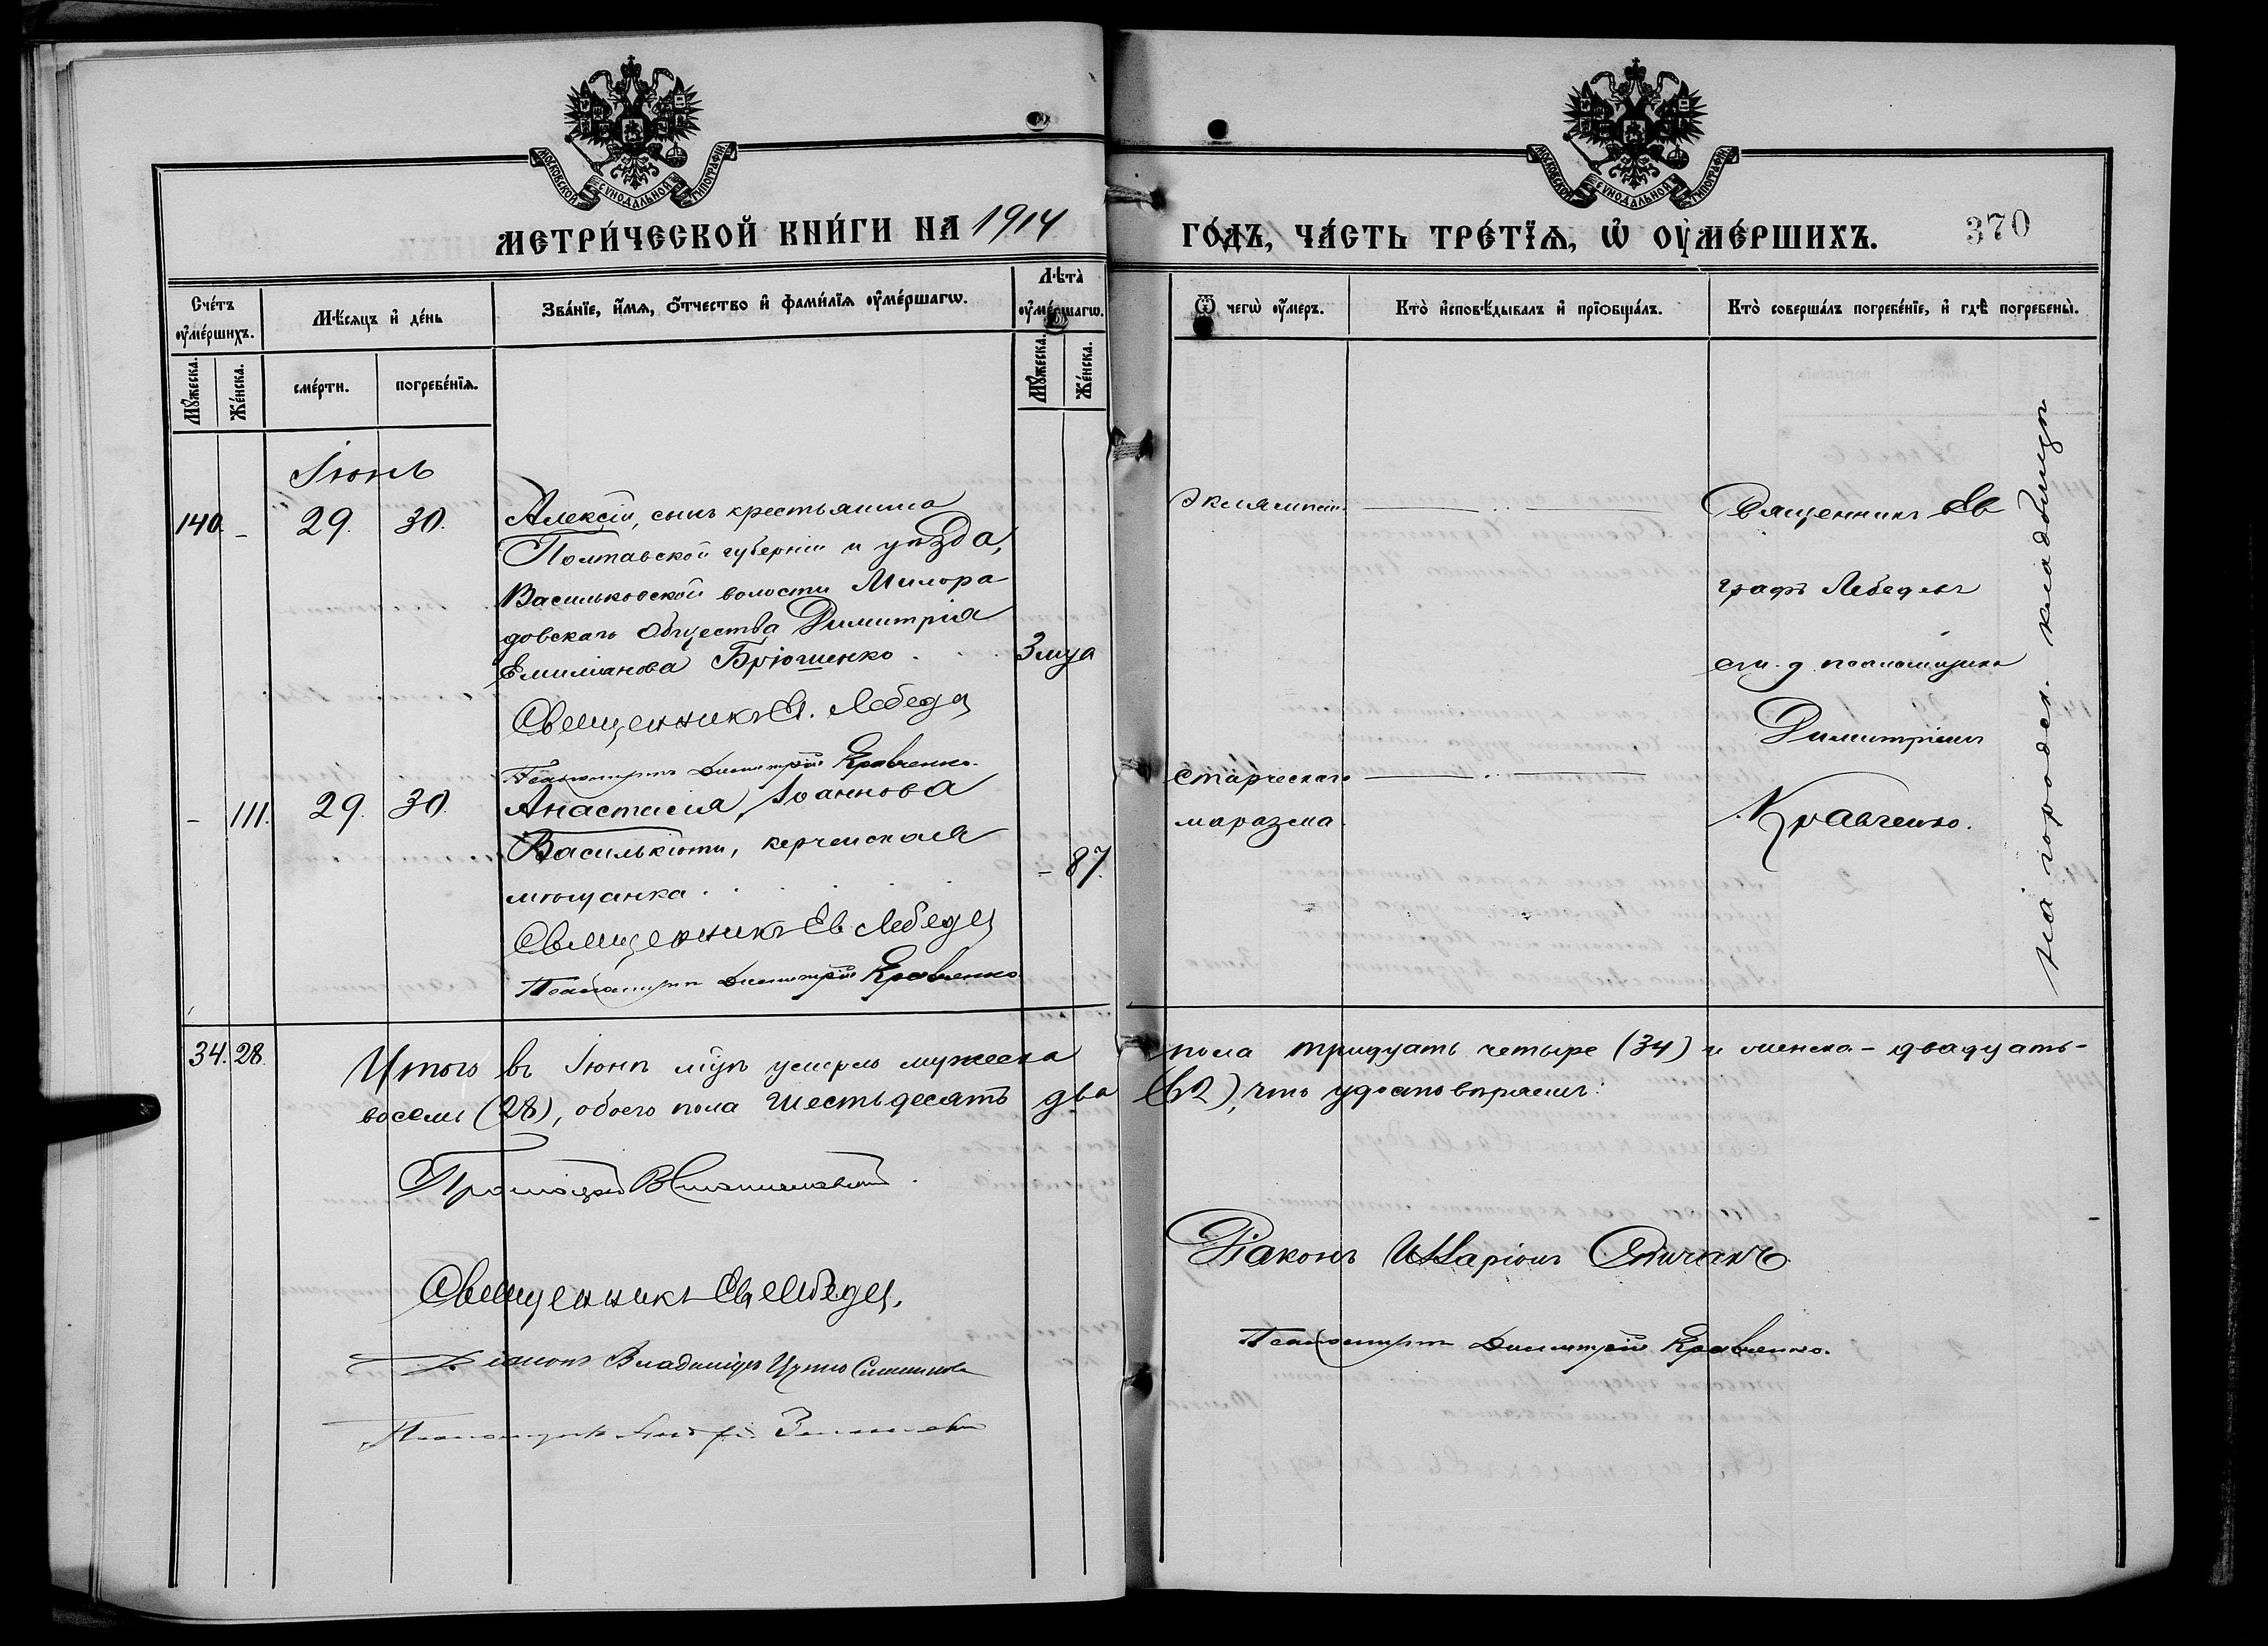 МОСКОВСКОЙ СѴНОДАЛЬНОЙ ТИПОГРАФІИ
МОСКОВСКОЙ СѴНОДАЛЬНОЙ ТИПОГРАФІИ
МЕТРИ́ЧЕСКОЙ КНИ́ГИ НА 1914
ГО́ДЪ, ЧА́СТЬ ТРЕ́ТЇѦ, Ѡ҆ ОУ҆МЕ́РШИХЪ.
370
Сче́тъ оу҆ме́ршихъ.
Мѣ́сяцъ и҆ де́нь
Зва́нїе, и҆́мѧ, ѻ҆́тчество и҆ фами́лїѧ оу҆ме́ршагѡ.
Лѣ́та̀ оу҆ме́ршагѡ.
Ѿ чегѡ̀ оу҆́меръ.
Кто̀ и҆сповѣ́дывалъ и҆ прїѻбща́лъ.
Кто̀ соверша́лъ погребе́нїе, и҆ гдѣ̀ погребены̀.
Мꙋ́жеска.
Же́нска.
сме́рти.
погребе́нїѧ.
Мꙋ́жеска.
Же́нска.
Іюнь
140. - 29. 30.
Алексій, сынъ крестьянина
Полтавской губерніи и уѣзда,
Васильковской волости Милора
довскаго Общества Димитрія
Емиліанова Брюшенко . . . 3 мца
Священникъ Ев. Лебеде
Псаломщикъ Димитрій Кравченко.
Эклямпсіи.
Священникъ Ев
графъ Лебедевъ
съ и. д. псаломщика
Димитріемъ
Кравченко.
На городск. кладбищѣ
- 111. 29. 30.
Анастасія Іоаннова
Василькіоти, керченская
мѣщанка . - 87.
Священникъ Ев Лебеде
Псаломщикъ Димитрій Кравченко.
Старческаго
маразма.
34. 28.
Итого въ Іюнѣ мцѣ умерло мужеска пола тридцать четыре (34) и женска - двадцать-
восемь (28), обоего пола шестьдесятъ два (62), что удостовѣряемъ:
Протоіерей
Священникъ Ев Лебеде
Діаконъ Владиміръ
Псаломщикъ
Діаконъ Иларіонъ
Псаломщикъ Димитрій Кравченко.